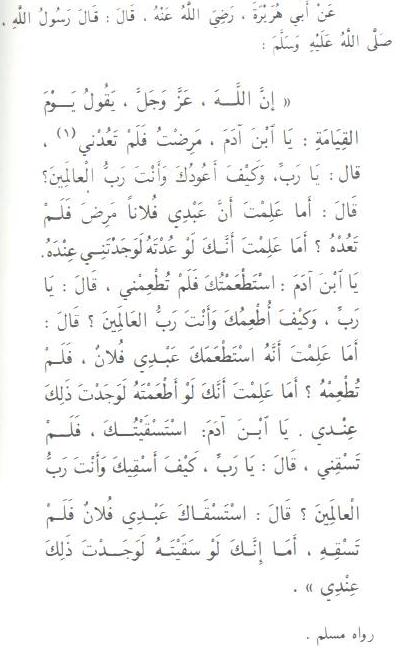 عَنْ أَبِي هُرَيْرَةَ ، رَضِيَ اللَّهُ عَنْهُ ، قَالَ : قَالَ رَسُولُ اللَّهِ ،
صَلَّى اللَّهُ عَلَيْهِ وَسَلَّمَ :
« إنَّ اللَّـــهَ ، عَزَّ وَجَلَّ ، يَقُولُ يَـــوْمَ
القِيَامَةِ : يَا ٱبْنَ آدَمَ ، مَرِضْتُ فَلَمْ تَعُدْنِي (١) ،
قال : يَا رَبِّ، وَكَيْفَ أَعُودُكَ وَأَنْتَ رَبُّ الْعالَمِينَ؟
قَالَ : أَما عَلِمْتَ أَنَّ عَبْدِي فُلاناً مَرِضَ فَلَــمْ
تَعُدْهُ ؟ أَمَا عَلِمْتَ أَنَّـكَ لَوْ عُدْتَهُ لَوَجَدْتَنِـي عِنْدَهُ.
يَا ٱبْنَ آدَمَ : اسْتَطْعَمْتُكَ فَلَمْ تُطْعِمْني ، قَالَ : يَا
رَبِّ ، وَكَيْفَ أُطْعِمُكَ وَأَنْتَ رَبُّ العَالَمِينَ ؟ قالَ :
أَمَا عَلِمْتَ أَنَّهُ اسْتَطْعَمَكَ عَبْدِي فُلانٌ ، فَلَـــمْ
تُطْعِمْهُ ؟ أَمَا عَلِمْتَ أَنَّكَ لَوْ أَطْعَمْتَهُ لَوَجَدْتَ ذَلِكَ
عِنْدي . يَا ٱبْـنَ آدَمَ: اسْتَسْقَيْتُـــكَ ، فَلَـــمْ
تَسْقِني ، قَالَ : يَا رَبِّ ، كَيْفَ أَسْقِيكَ وَأَنْتَ رَبُّ
الْعالَمِينَ ؟ قَالَ : اسْتَسْقَـاكَ عَبْـدِي فُلانٌ فَلَمْ
تَسْقِــهِ ، أَمَا إنَّــكَ لَوْ سَقَيْتَـهُ لَوَجَـــدْتَ ذَلِكَ
عِنْدِي » .
رواه مسلم .